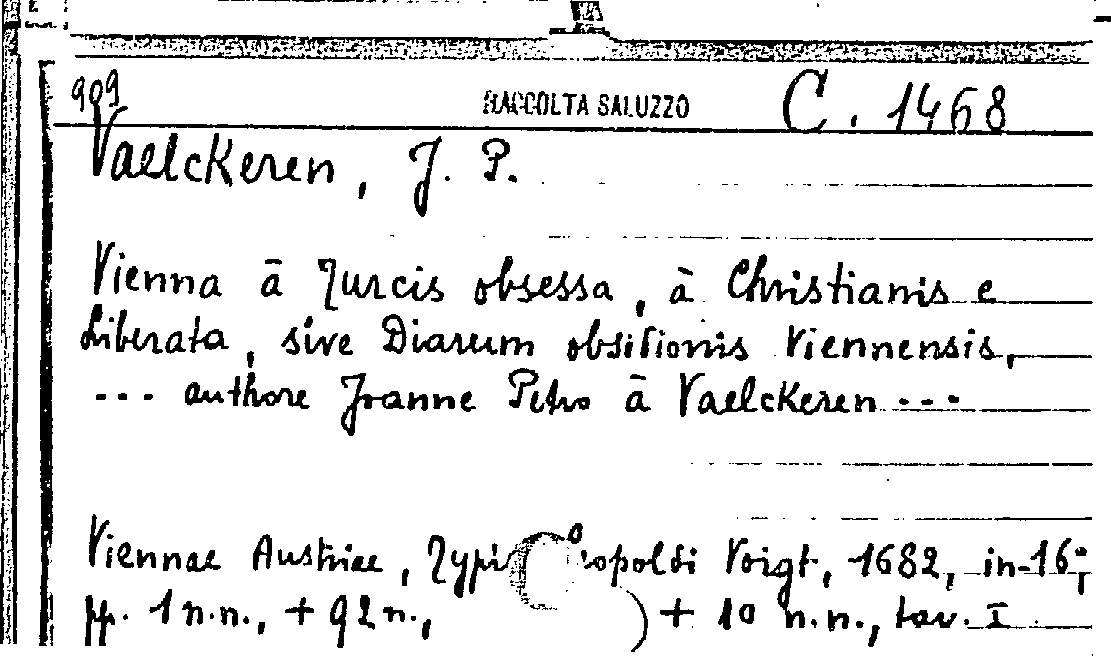 909 RACCOLTA SALUZZO C. 1468
Vaelckeren, J. P.
Vienna ā Turcis obsessa, à Christianis e
Liberata, sive Diarum obsitionis Viennensis,
--- authore Joanne Petro ā Vaelckeren ---
Viennae Austriae, Typi opoldi Voigt, 1682, in-16°,
pp. 1 n.n., + 92 n., ) + 10 n.n., tav. I